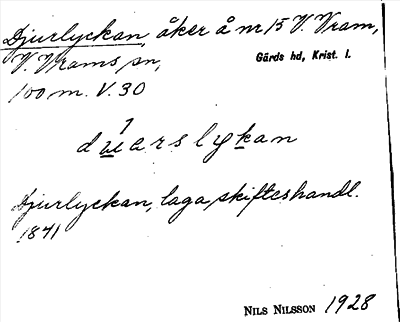 Djurlyckan, åker å nr 15 V. Vram,
V. Vrams sn,
Gärds hd, Krist. l.
100 m. V. 30
duarslykan
Djurlyckan, laga skifteshandl.
1841
NILS NILSSON 1928